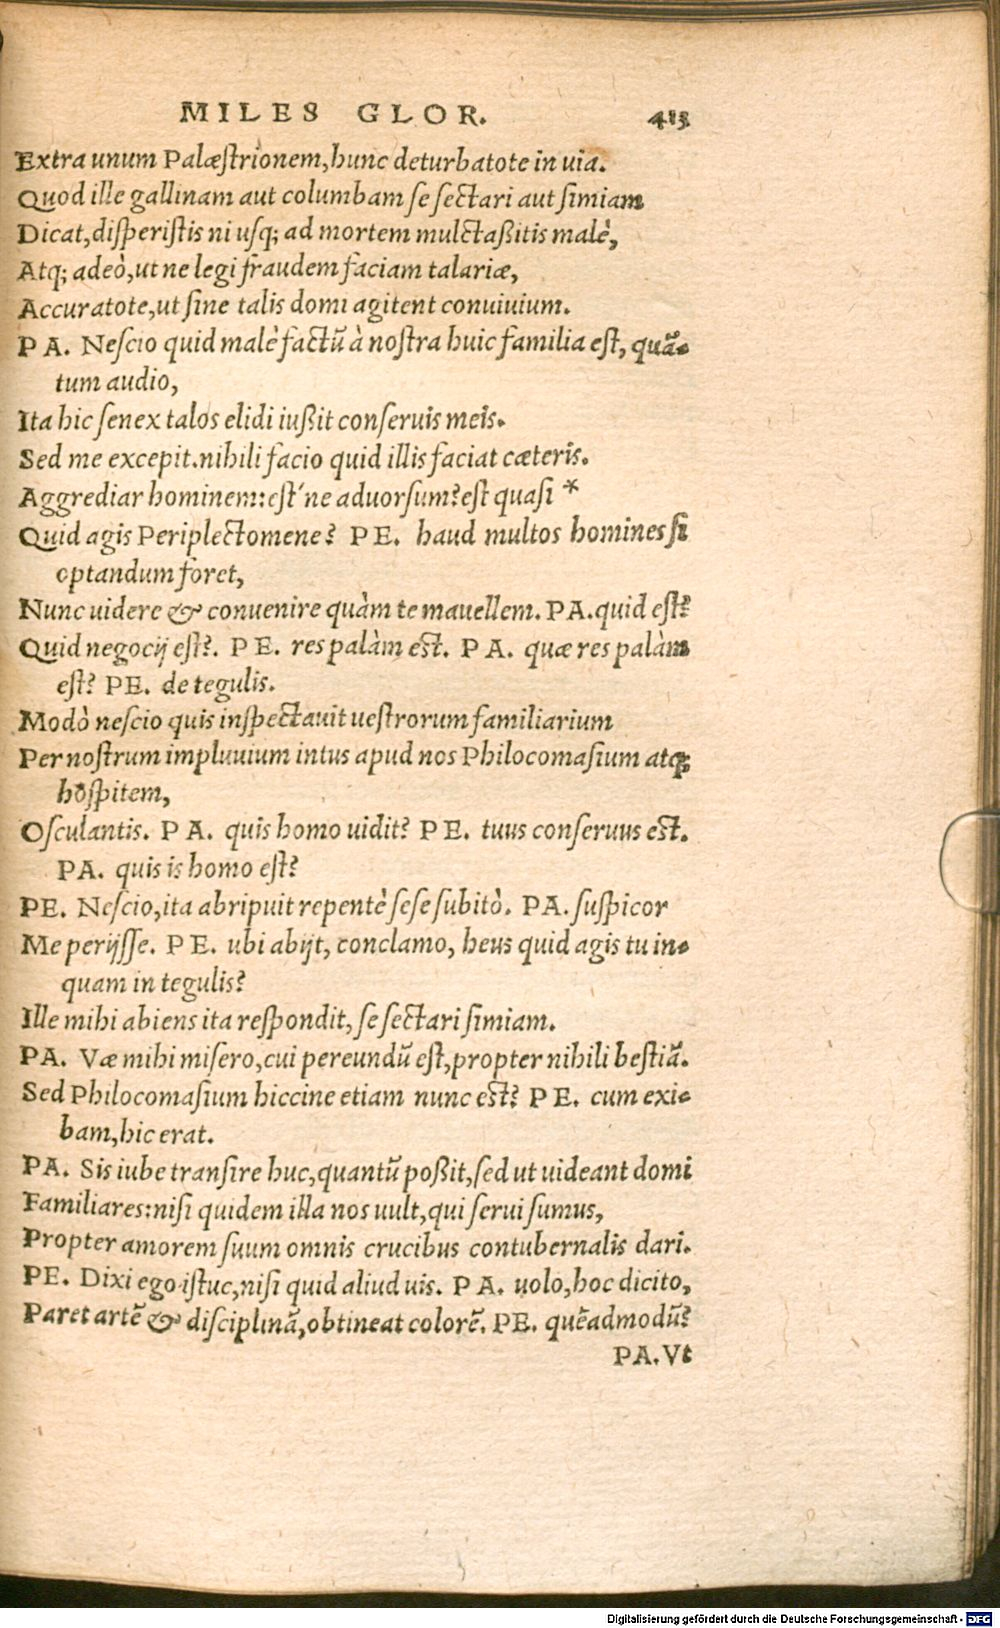 MILES GLOR. 413
Extra unum Palæstrionem, hunc deturbatote in uia.
Quod ille gallinam aut columbam se sectari aut simiam
Dicat, disperistis ni usq; ad mortem mulctaßitis malè,
Atq; adeò, ut ne legi fraudem faciam talariæ,
Accuratote, ut sine talis domi agitent conuiuium.
PA. Nescio quid malè factũ à nostra huic familia est, quã-
tum audio,
Ita hic senex talos elidi iußit conseruis meis.
Sed me excepit. nihili facio quid illis faciat cæteris.
Aggrediar hominem: est'ne aduorsum? est quasi *
Quid agis Periplectomene? PE. haud multos homines si
optandum foret,
Nunc uidere & conuenire quàm te mauellem. PA. quid est?
Quid negocij est?. PE. res palàm est. PA. quæ res palàm
est? PE. de tegulis.
Modò nescio quis inspectauit uestrorum familiarium
Per nostrum impluuium intus apud nos Philocomasium atq;
hospitem,
Osculantis. PA. quis homo uidit? PE. tuus conseruus est.
PA. quis is homo est?
PE. Nescio, ita abripuit repentè sese subitò. PA. suspicor
Me perijsse. PE. ubi abijt, conclamo, heus quid agis tu in-
quam in tegulis?
Ille mihi abiens ita respondit, se sectari simiam.
PA. Væ mihi misero, cui pereundũ est, propter nihili bestiã.
Sed Philocomasium hiccine etiam nunc est? PE. cum exi-
bam, hic erat.
PA. Sis iube transire huc, quantũ poßit, sed ut uideant domi
Familiares: nisi quidem illa nos uult, qui serui sumus,
Propter amorem suum omnis crucibus contubernalis dari.
PE. Dixi ego istuc, nisi quid aliud uis. PA. uolo, hoc dicito,
Paret artẽ & disciplinã, obtineat colorẽ. PE. quẽadmodũ?
PA. Vt
Digitalisierung gefördert durch die Deutsche Forschungsgemeinschaft - DFG